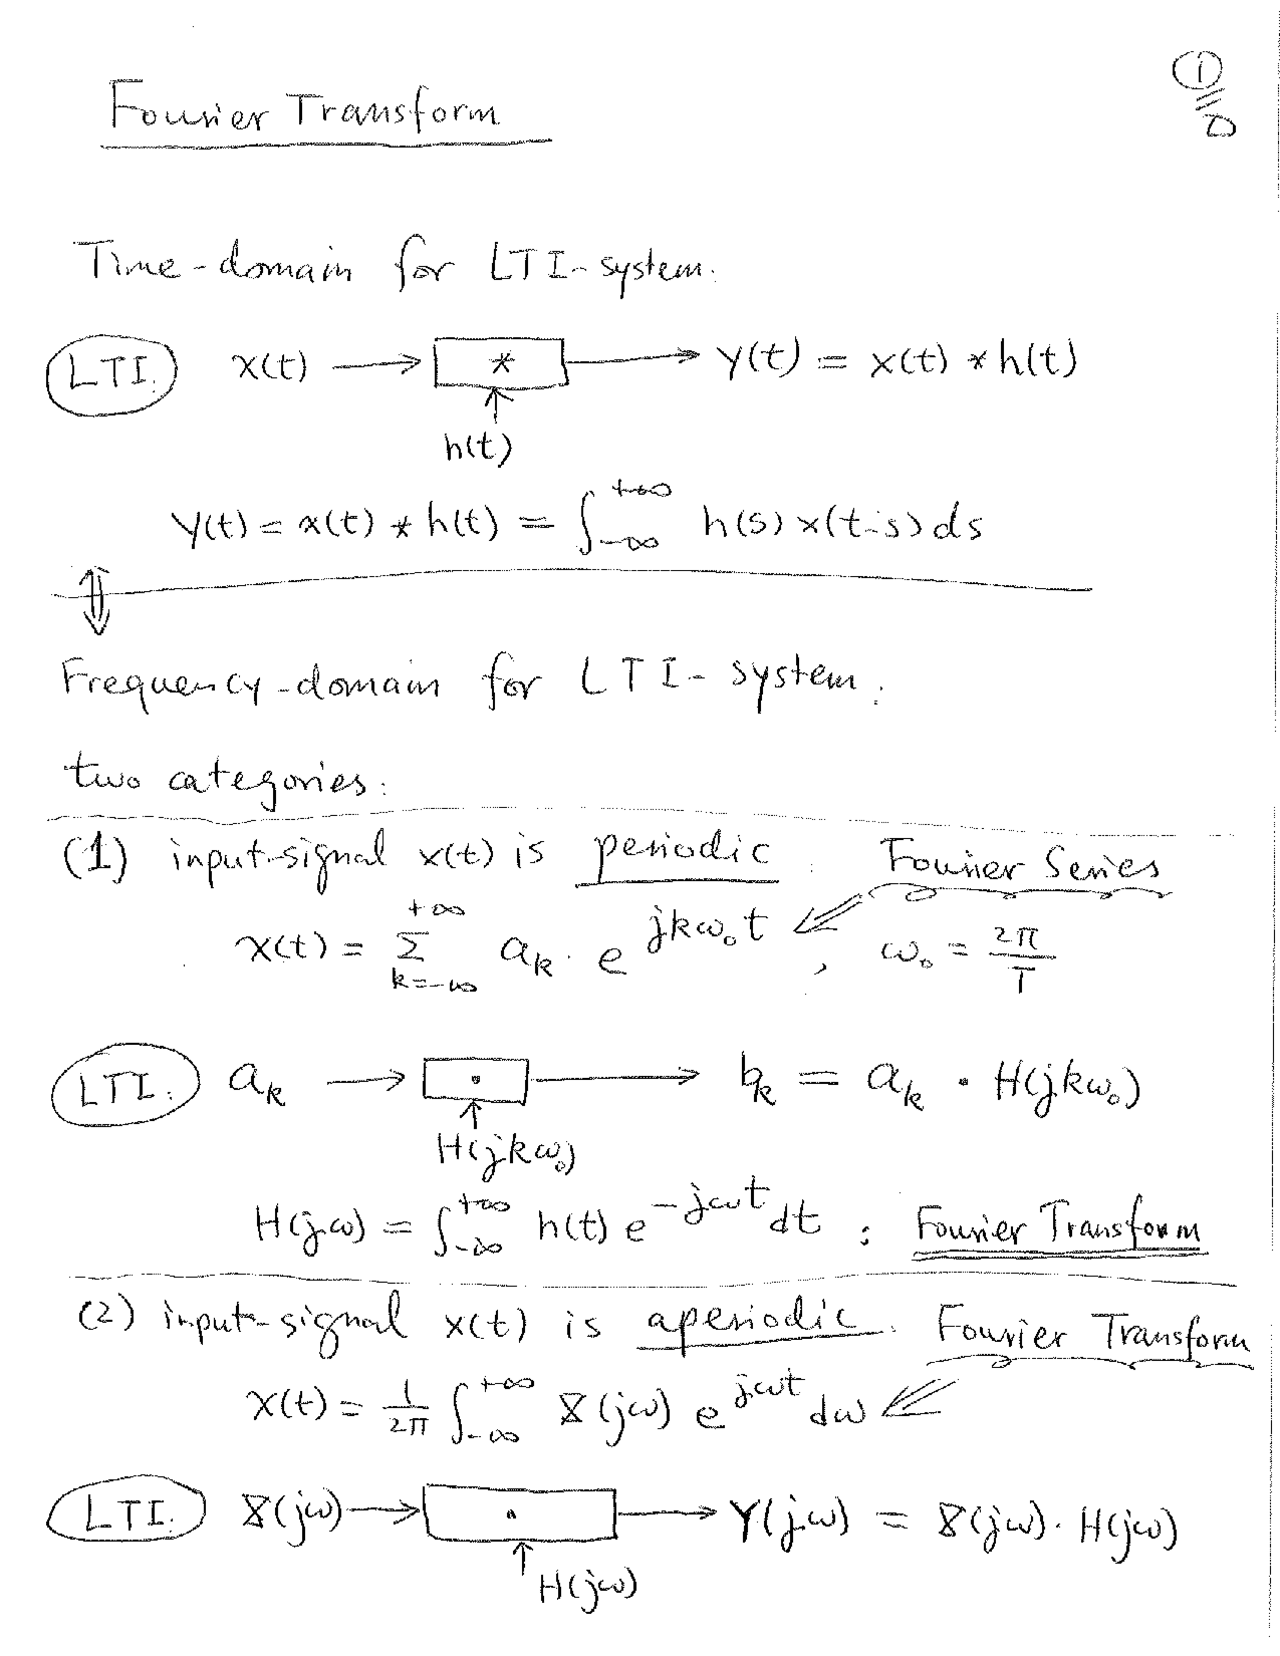 ①
Fourier Transform
Time-domain for LTI-system.
LTI. x(t) → * → y(t) = x(t) * h(t)
↑
h(t)
y(t) = x(t) * h(t) = ∫_{-∞}^{+∞} h(s) x(t-s) ds
⇕
Frequency-domain for LTI-system.
two categories:
(1) input-signal x(t) is periodic. Fourier Series
x(t) = Σ_{k=-∞}^{+∞} a_k · e^{jkω₀t} , ω₀ = 2π/T
LTI. a_k → · → b_k = a_k · H(jkω₀)
↑
H(jkω₀)
H(jω) = ∫_{-∞}^{+∞} h(t) e^{-jωt} dt : Fourier Transform
(2) input-signal x(t) is aperiodic. Fourier Transform
x(t) = 1/2π ∫_{-∞}^{+∞} X(jω) e^{jωt} dω
LTI. X(jω) → · → Y(jω) = X(jω) · H(jω)
↑
H(jω)